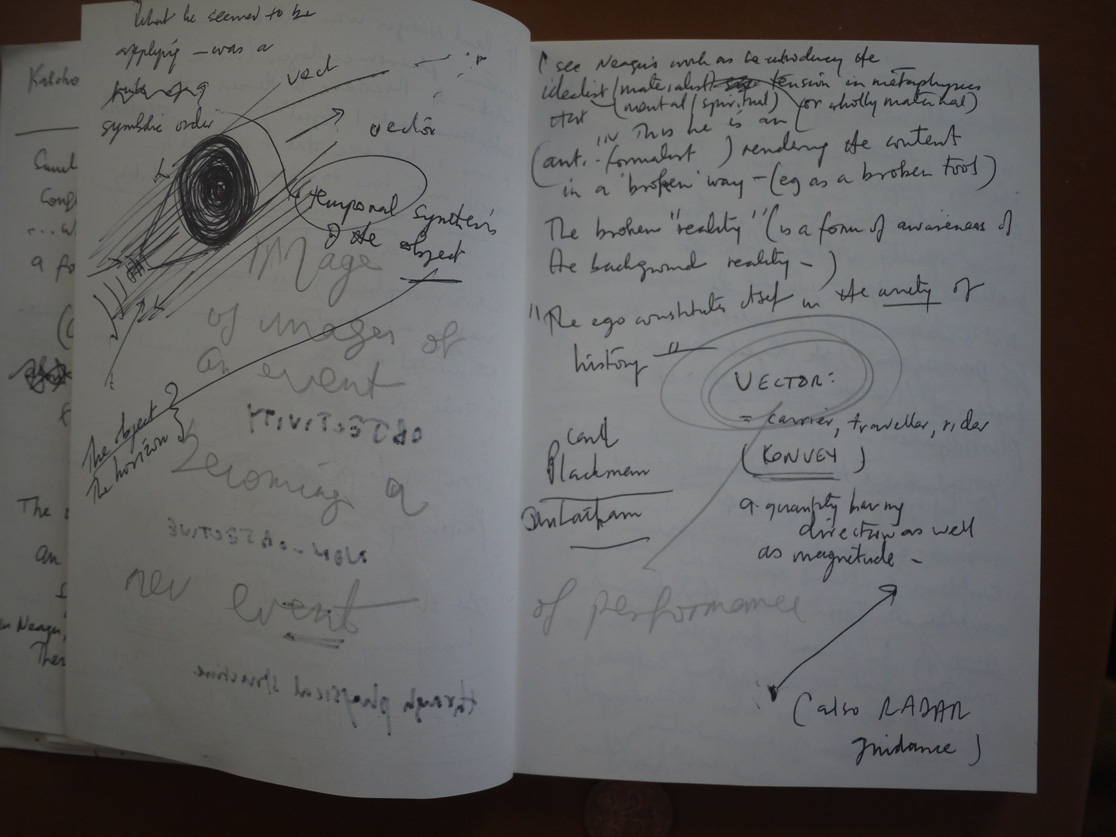 What he seemed to be
applying – was a
symbolic order
vect
vector
temporal synthesis
of the object
Image
of images of
an event
OBJECTIVITY
The object?
The horizon
becoming a
NON-OBJECTIVE
new event
through physical structure
Katcho
a fo
The
an
Neagu,
Ther
I see Neagu's work as he introduces the
idealist/materialist tension in metaphysics
that (mental/spiritual) (or wholly material)
in this he is an
(anti-formalist) rendering the content
in a 'broken' way – (eg as a broken tool)
The broken "reality" (is a form of awareness of
the background reality – )
"The ego constitutes itself in the unity of
history"
VECTOR:
= carrier, traveller, rider
(KONVEY)
Carl
Plackman
a quantity having
direction as well
as magnitude –
of performance
(also RADAR
guidance)